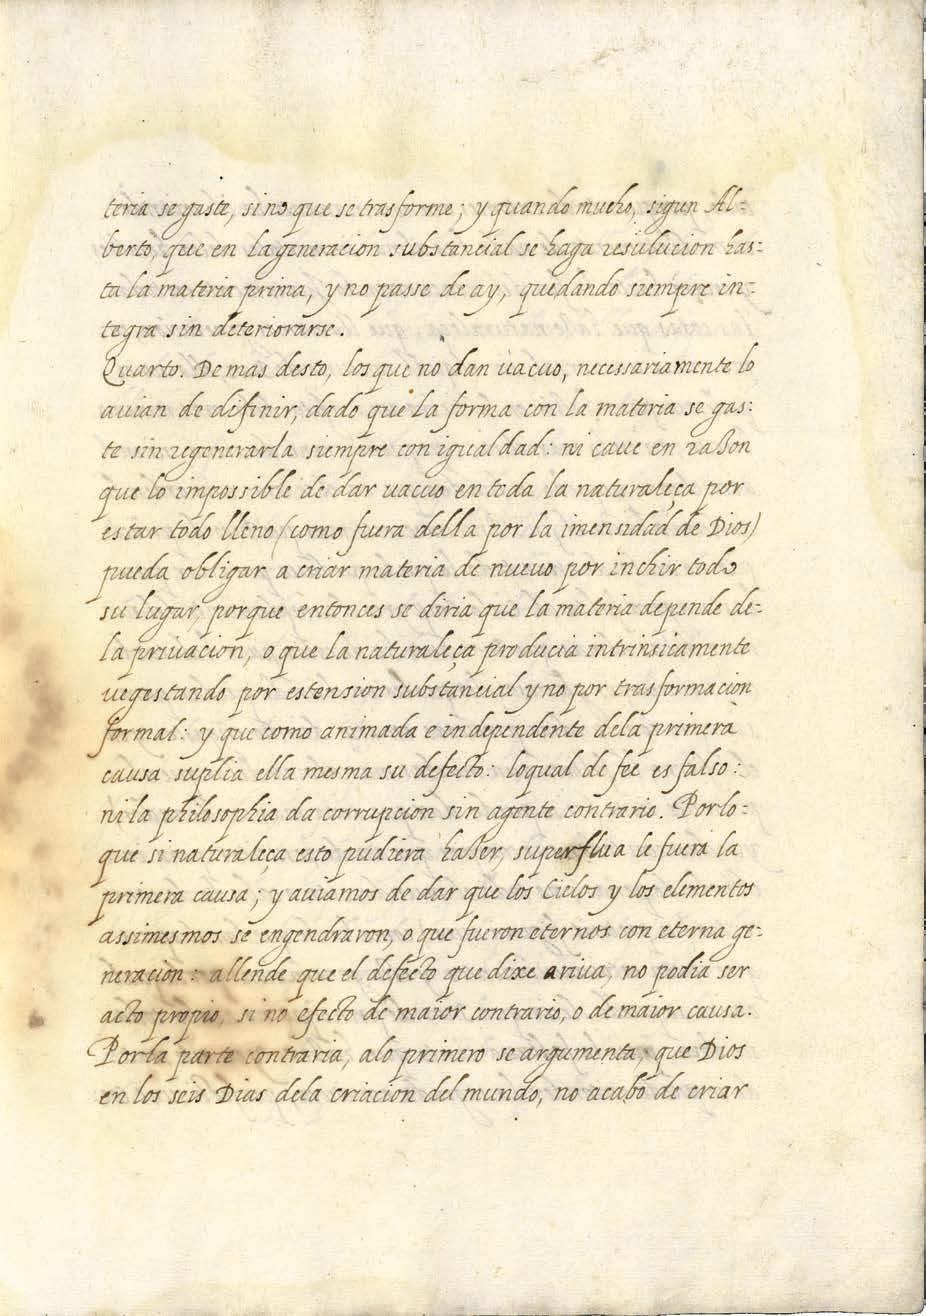 teria se gaste, sino que se trasforme; y quando mucho, sigun Al-
berto, que en la generacion substancial se haga resulucion has-
ta la materia prima, y no passe de ay, quedando siempre in-
tegra sin deteriorarse.
Quarto. De mas desto, los que no dan vacuo, necessariamente lo
avian de difinir, dado que la forma con la materia se gas-
te sin regenerarla siempre con igualdad: ni cave en razon
que lo impossible de dar vacuo en toda la naturaleça por
estar todo lleno (como fuera della por la imensidad de Dios)
pueda obligar a criar materia de nuevo por inchir todo
su lugar, porque entonces se diria que la materia depende de-
la privacion, o que la naturaleça producia intrinsicamente
vegestando por estension substancial y no por trasformacion
formal: y que como animada e independente dela primera
causa suplia ella mesma su defecto: loqual de fee es falso:
ni la philosophia da corrupcion sin agente contrario. Por lo-
que si naturaleça esto pudiera hazer, superflua le fuera la
primera causa; y aviamos de dar que los Cielos y los elementos
assimesmos se engendraron, o que fueron eternos con eterna ge-
neracion: allende que el defecto que dixe ariva, no podia ser
acto propio, si no efecto de maior contrario, o de maior causa.
Por la parte contraria, alo primero se argumenta, que Dios
en los seis Dias dela criacion del mundo, no acabó de criar